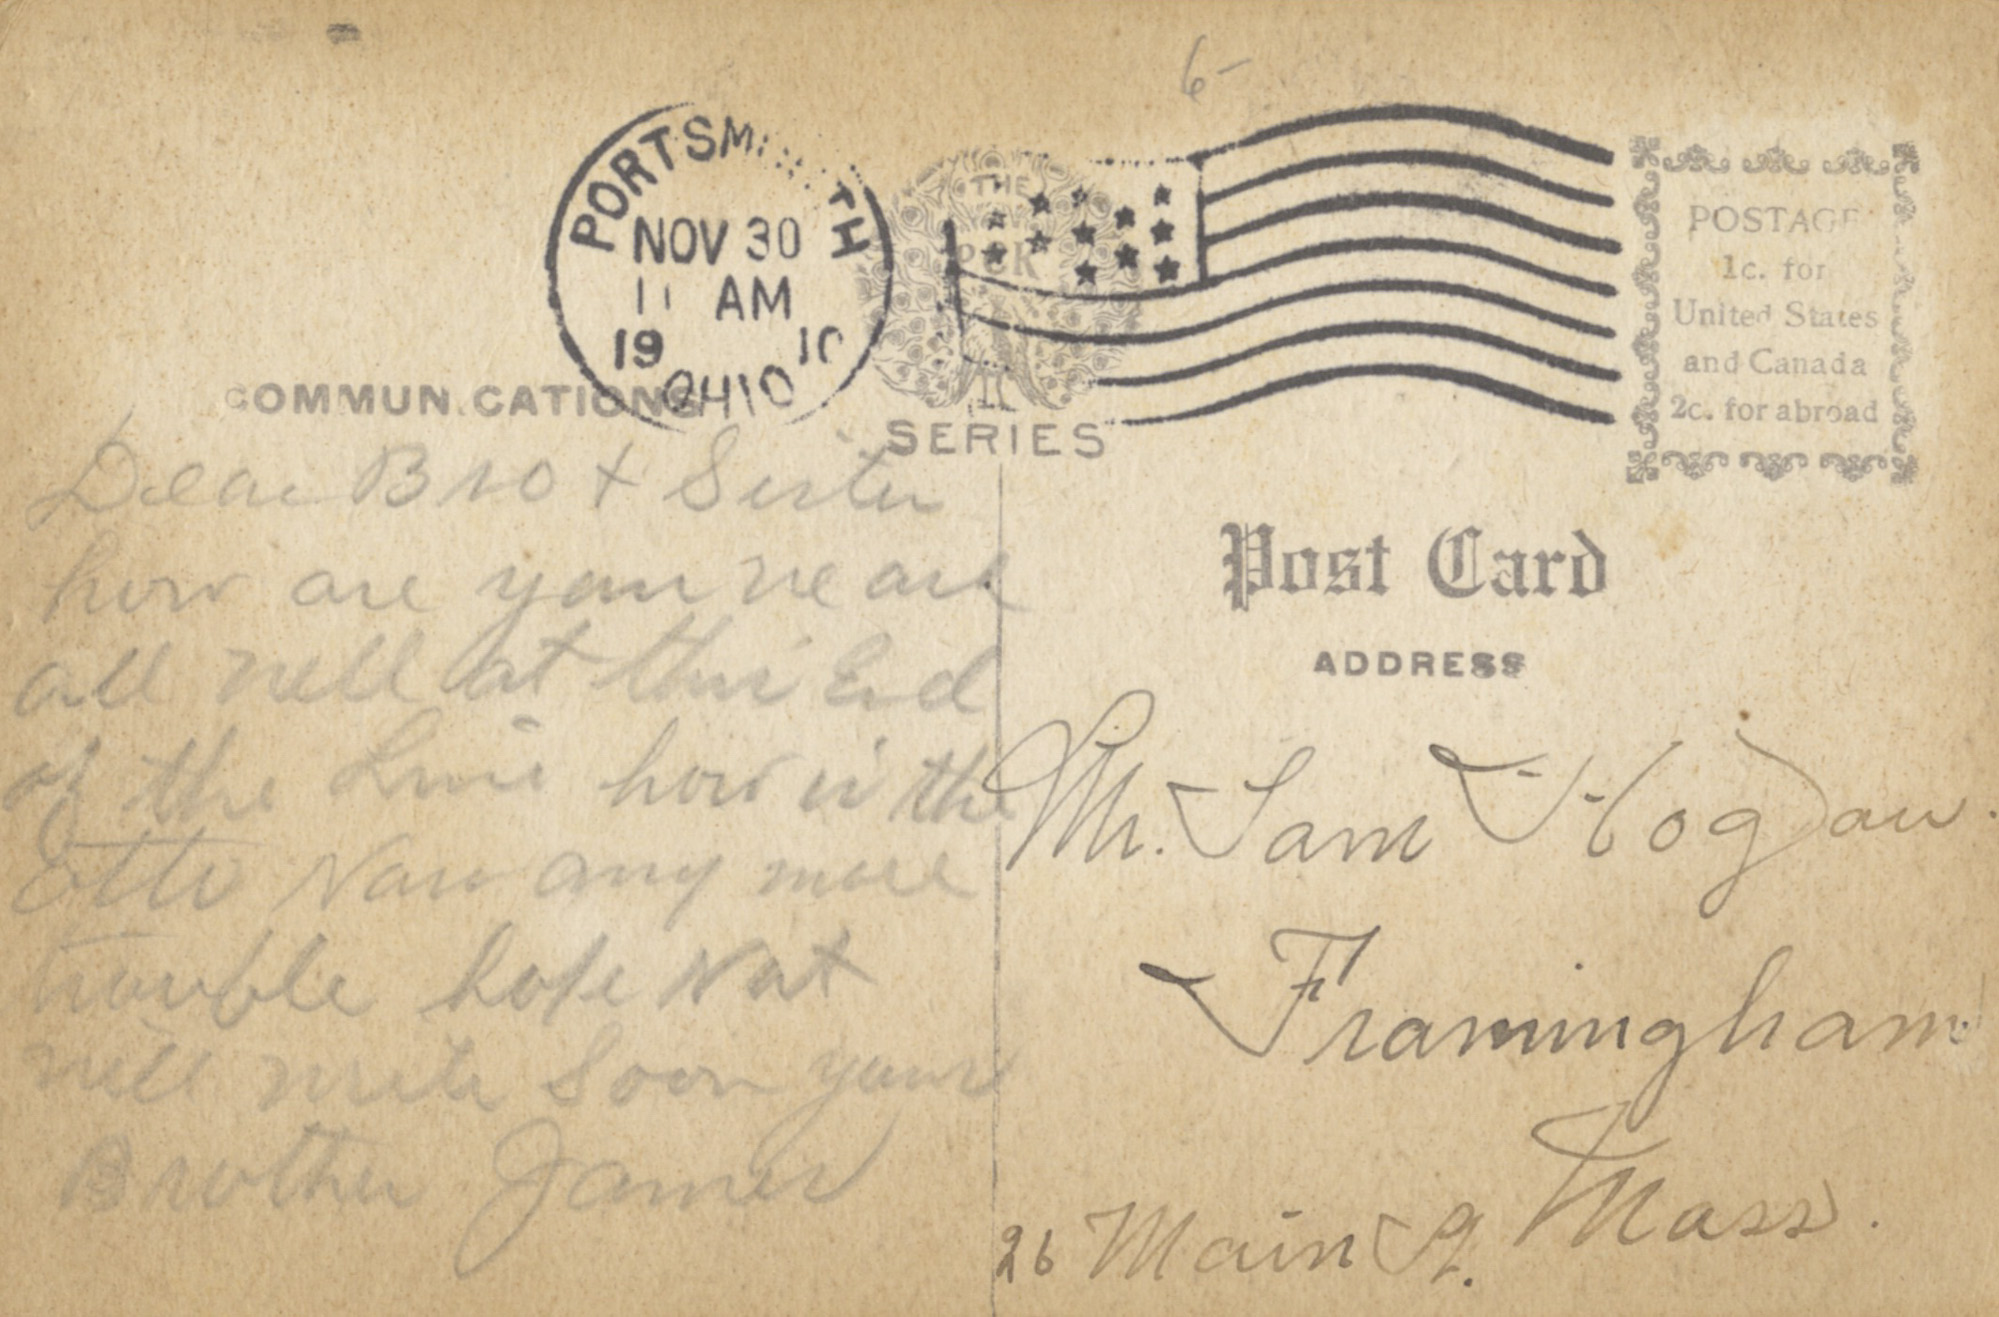 6-
PORTSMOUTH
NOV 30
11 AM
19 10
OHIO
THE
PCK
SERIES
POSTAGE
1c. for
United States
and Canada
2c. for abroad
COMMUNICATIONS
Dear Bro + Sister
how are you we are
all well at this End
of the Line how is the
Otto Now any more
trouble hope Not
will write Soon your
Brother James
Post Card
ADDRESS
Mr. Sam Hogdau.
Framingham.
Mass.
26 Main St.